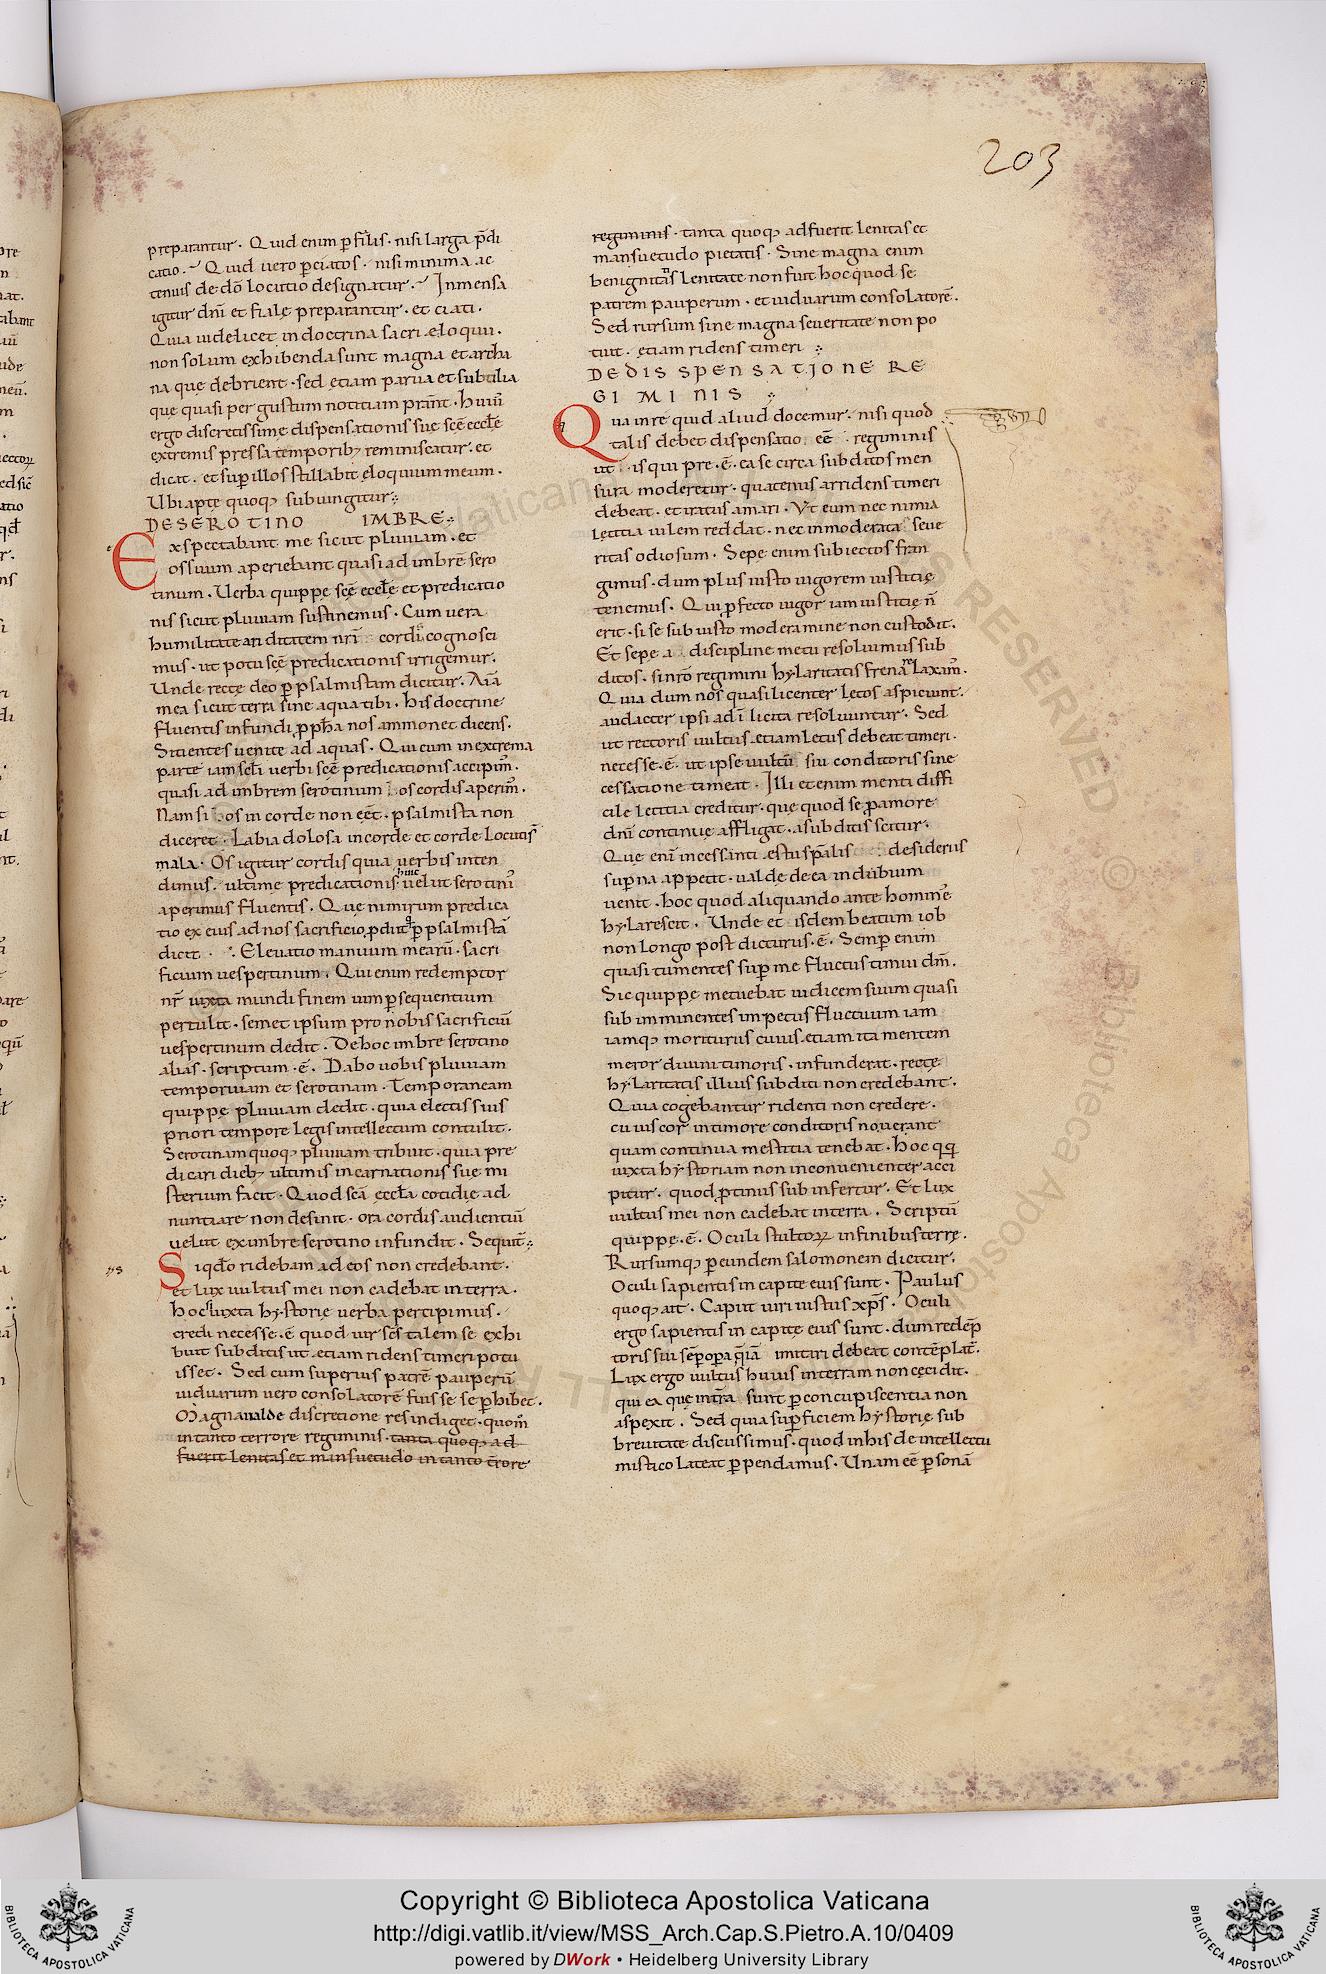 203
preparantur. Quid enim p̱ fialis. nisi larga p̄di
catio. Quid vero p̱ ciatos. nisi minima ac
tenuis de dō locutio designatur. Inmensa
igitur dn̄i et fialę preparantur. et ciati.
Quia uidelicet in doctrina sacri eloquii.
non solum exhibenda sunt magna et archa
na quę debrient. sed etiam parua et subtilia
quę quasi per gustum notitiam pran̄t. huiꝰ
ergo discretissime dispensationis suę scē eccłe
extremis pressa temporibꝫ reminiscatur. et
dicat. et sup̱ illos stillabit eloquium meum.
Ubi aptę quoqꝫ subiungitur
DE SEROTINO IMBRE
Exspectabant me sicut pluuiam. et
os suum aperiebant quasi ad imbrē sero
tinum. Uerba quippę scē eccłe et predicatio
nis sicut pluuiam sustinemus. Cum uera
humilitate ariditatem nr̄i cordis cognosci
mus. ut potu scē predicationis irrigemur.
Unde rectę deo p̱ psalmistam dicitur. Aīa
mea sicut terra sine aqua tibi. his doctrine
fluentis infundi ꝓph̄a nos ammonet dicens.
Sitientes uenite ad aquas. Qui cum in extrema
parte iam sełi uerbi scē predicationis accipimꝰ.
quasi ad imbrem serotinum os cordis aperimꝰ.
Nam si os in corde non eēt. psalmista non
diceret. Labia dolosa in corde et corde locutis̄
mala. Os igitur cordis quia uerbis inten
dimus. ultime predicationis hinc uelut serotinis
aperimus fluentis. Quę nimirum predica
tio ex eius ad nos sacrificio ꝓdiit q̱ p̱ psalmistā
dicit. Eleuatio manuum mearū. sacri
ficium uespertinum. Qui enim redemptor
nr̄ iuxta mundi finem uim p̱sequentium
pertulit. semet ipsum pro nobis sacrificiū
uespertinum dedit. De hoc imbre serotino
alias. scriptum. ē. Dabo uobis pluuiam
temporiuam et serotinam. Temporaneam
quippę pluuiam dedit. quia electis suis
priori tempore legis intellectum contulit.
Serotinam quoqꝫ pluuiam tribuit. quia pre
dicari diebꝫ ultimis incarnationis suę mi
sterium facit. Quod scā eccła cotidię ad
nuntiare non desinit. ora cordis audientiū
uelut ex imbre serotino infundit. Sequit̄
Siqdo ridebam ad eos non credebant.
et lux uultus mei non cadebat in terra.
hoc iuxta hystorię uerba percipimus.
credi necesse. ē quod uir scs̄ talem se exhi
buit subditis ut etiam ridens timeri potu
isset. Sed cum superius patrē pauperū
uiduarum uero consolatorē fuisse se p̱hibet.
Magna ualde discretione res indiget. quom̄
in tanto terrore regiminis. tanta quoqꝫ ad
fuerit lenitas et mansuetudo in tanto t̄rore
regiminis. tanta quoqꝫ adfuerit lenitas et
mansuetudo pietatis. Sine magna enim
benignitatis lenitate non fuit hoc quod se
patrem pauperum. et uiduarum consolatorē.
Sed rursum sine magna seueritate non po
tuit. etiam ridens timeri
DE DISSPENSATIONE RE
GIMINIS
Qua in re quid aliud docemur. nisi quod
talis debet dispensatio eē regiminis
ut is qui pre. ē. ea se circa subditos men
sura moderetur. quatenus arridens timeri
debeat. et iratus amari. Ut eum nec nimia
lętitia uilem reddat. nec inmoderata seue
ritas odiosum. Sepe enim subiectos fran
gimus. dum plus iusto uigorem iustitię
tenemus. Qui ꝓfecto uigor iam iustitię n̄
erit. si se sub iusto moderamine non custodit.
Et sepę a disciplinę metu resoluimus sub
ditos. si nr̄o regimini hylaritatis frena relaxamꝰ.
Quia dum nos quasi licenter lętos aspiciunt.
audacter ipsi ad illicita resoluuntur. Sed
ut rectoris uultus etiam lętus debeat timeri.
necesse. ē. ut ipse uultū sui conditoris sine
cessatione timeat. Illi etenim menti diffi
cile lętitia creditur. quę quod se ꝓ amore
dn̄i continuę affligat. a subditis scitur.
Quę eni incessanti estu sp̄alis desiderus
sup̱na appetit. ualde de ea in dubium
uenit. hoc quod aliquando ante hominē
hylarescit. Unde et isdem beatum iob
non longo post dicturus. ē. Semp̱ enim
quasi tumentes sup̱ me fluctus timui dm̄.
Sic quippę metuebat iudicem suum quasi
sub imminentes impetus fluctuum iam
iamqꝫ moriturus cuius etiam ita mentem
meror diuini timoris. infunderat. rectę
hylaritatis illius subditi non credebant.
Quia cogebantur ridenti non credere.
cuius cor in timore conditoris nouerant
quam continua mestitia tenebat. hoc qq̱
iuxta hystoriam non inconuenienter acci
pitur. quod ꝓtinus subinfertur. Et lux
uultus mei non cadebat in terra. Scriptū
quippe. ē. Oculi stultoꝝ in finibus terrę.
Rursumqꝫ p̱ eundem salomonem dicitur.
Oculi sapientis in capite eius sunt. Paulus
quoqꝫ ait. Caput uiri iustus xp̄s. Oculi
ergo sapientis in capitę eius sunt. dum redēp
toris sui semp̱ opera q̄ imitari debeat contēplat̄.
Lux ergo uultus huius in terram non cęcidit.
qui ea quę in terra sunt p̱ concupiscentia non
aspexit. Sed quia sup̱ficiem hystorię sub
breuitate discussimus. quod in his de intellectu
mistico lateat p̱pendamus. Unam eē p̱sonā
Copyright © Biblioteca Apostolica Vaticana
http://digi.vatlib.it/view/MSS_Arch.Cap.S.Pietro.A.10/0409
powered by DWork • Heidelberg University Library
BIBLIOTECA APOSTOLICA VATICANA
BIBLIOTECA APOSTOLICA VATICANA